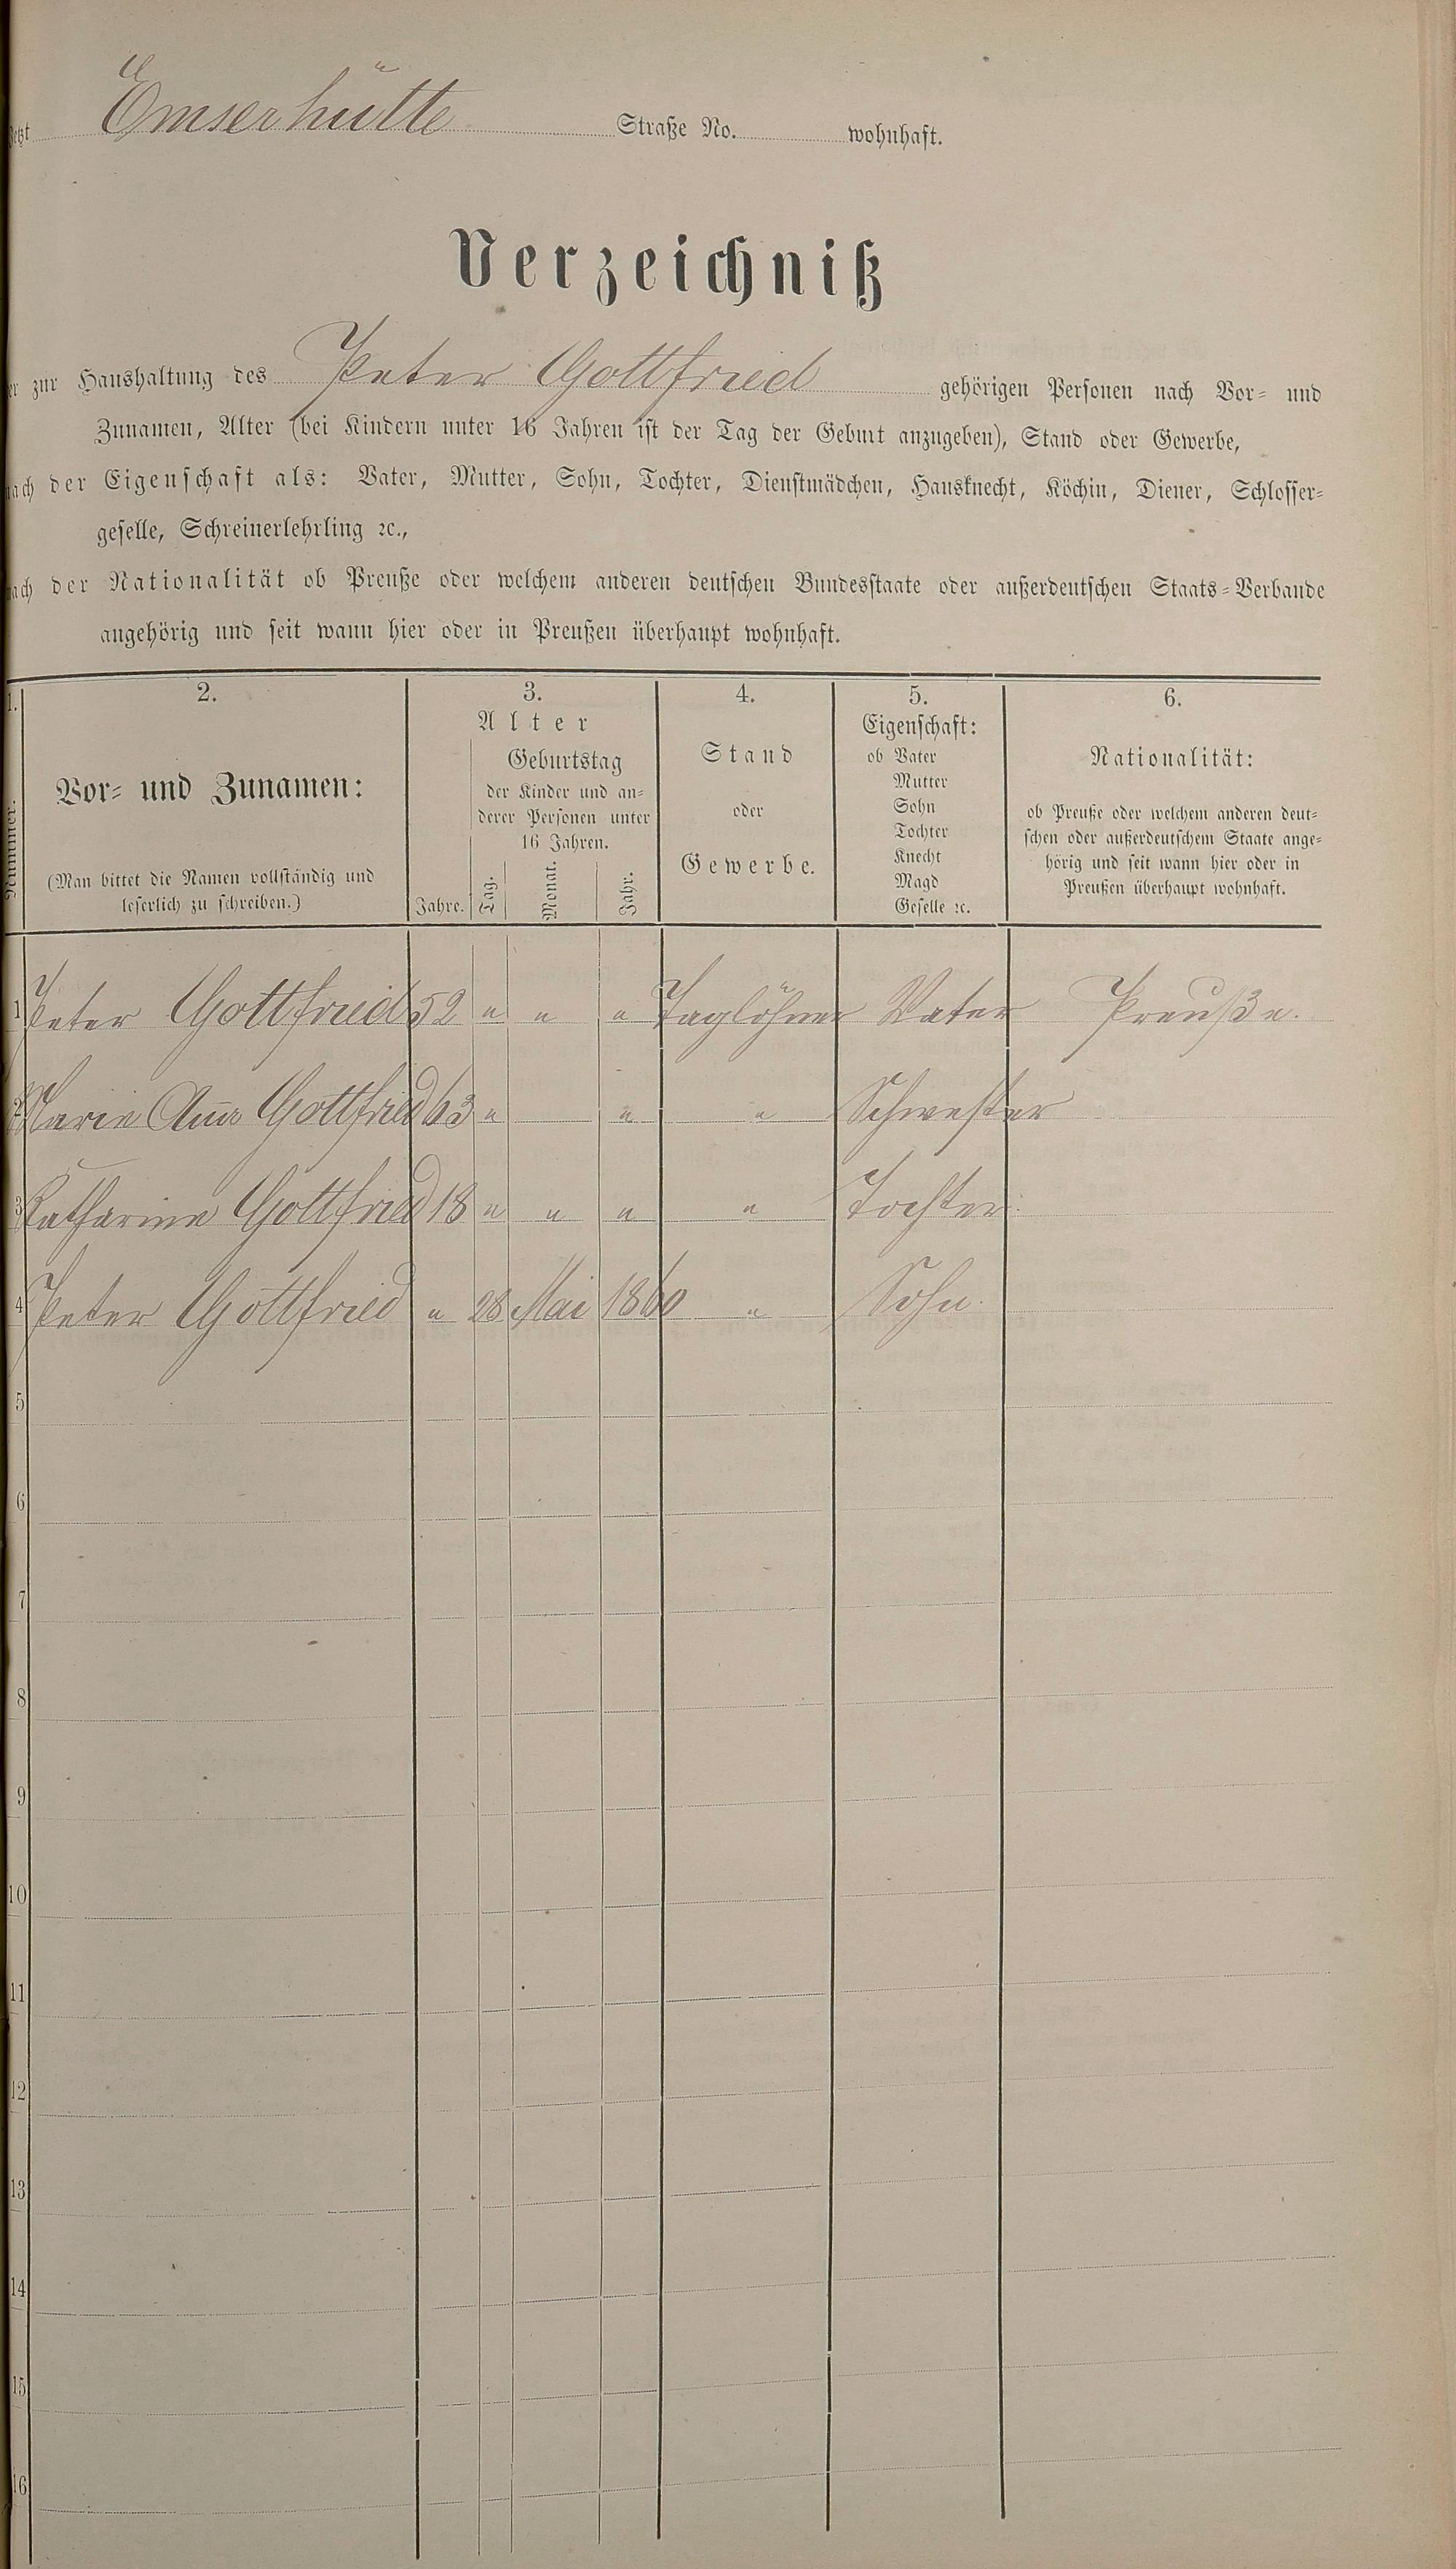 Jetzt Emserhütte Straße No. wohnhaft.
Verzeichniß
zur Haushaltung des Peter Gottfried gehörigen Personen nach Vor- und
Zunamen, Alter (bei Kindern unter 16 Jahren ist der Tag der Geburt anzugeben), Stand oder Gewerbe,
nach der Eigenschaft als: Vater, Mutter, Sohn, Tochter, Dienstmädchen, Hausknecht, Köchin, Diener, Schlosser-
geselle, Schreinerlehrling ꝛc.,
nach der Nationalität ob Preuße oder welchem anderen deutschen Bundesstaate oder außerdeutschen Staats-Verbande
angehörig und seit wann hier oder in Preußen überhaupt wohnhaft.
1.
Nummer.
2.
Vor- und Zunamen:
(Man bittet die Namen vollständig und
leserlich zu schreiben.)
3.
Alter
Jahre.
Geburtstag
der Kinder und an-
derer Personen unter
16 Jahren.
Tag. Monat. Jahr.
4.
Stand
oder
Gewerbe.
5.
Eigenschaft:
ob Vater
Mutter
Sohn
Tochter
Knecht
Magd
Geselle ꝛc.
6.
Nationalität:
ob Preuße oder welchem anderen deut-
schen oder außerdeutschem Staate ange-
hörig und seit wann hier oder in
Preußen überhaupt wohnhaft.
1 Peter Gottfried 52 " " " Taglöhner Vater Preuße.
2 Marie Anna Gottfried 63 " " " Schwester
3 Katharina Gottfried 18 " " " " Tochter.
4 Peter Gottfried " 28 Mai 1860 " Sohn.
5
6
7
8
9
10
11
12
13
14
15
16